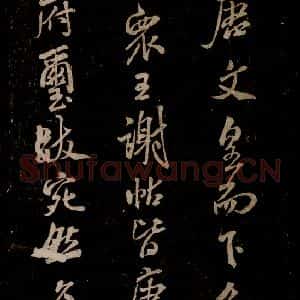 唐文皇而下
衆王謝帖皆唐
府璽跋宛然
Shufawang.CN